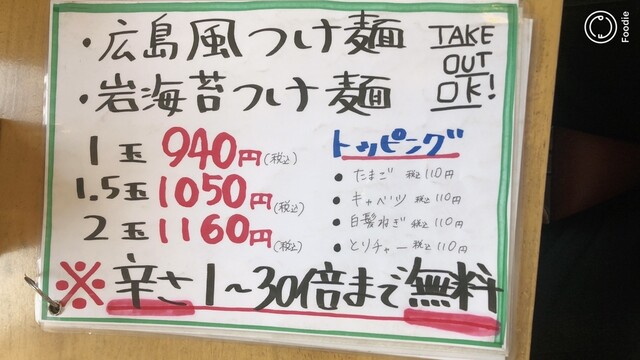 ・広島風つけ麺
・岩海苔つけ麺
TAKE
OUT
OK!
1玉 940円(税込)
1.5玉 1050円(税込)
2玉 1160円(税込)
トッピング
●たまご 税込110円
●キャベツ 税込110円
●白髪ねぎ 税込110円
●とりチャー 税込110円
※辛さ1～30倍まで無料
Foodie